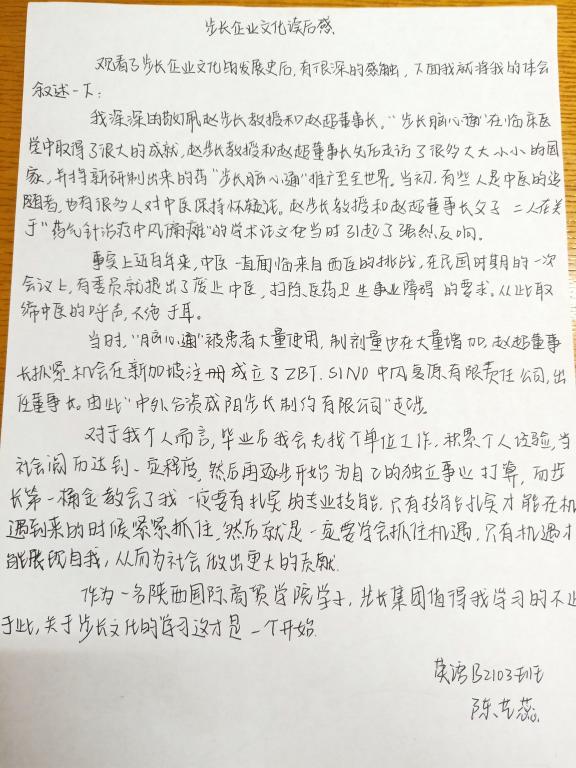 步长企业文化读后感.
观看了步长企业文化的发展史后,有很深的感触,下面我就将我的体会
叙述一下:
我深深的敬佩赵步长教授和赵超董事长。“步长脑心通”在临床医
学中取得了很大的成就,赵步长教授和赵超董事长先后走访了很多大大小小的国
家,并将新研制出来的药“步长脑心通”推广至全世界。当初,有些人是中医的追
随者,也有很多人对中医保持怀疑态。赵步长教授和赵超董事长父子二人在关
于“药气针治疗中风偏瘫”的学术论文在当时引起了强烈反响。
事实上近百年来,中医一直面临来自西医的挑战,在民国时期的一次
会议上,有委员就提出了废止中医,扫除医药卫生事业障碍的要求。从此取
缔中医的呼声,不绝于耳。
当时,“脑心通”被患者大量使用,制剂量也在大量增加,赵超董事
长抓紧机会在新加坡注册成立了ZBT.SINO中风复原有限责任公司,出
任董事长。由此“中外合资咸阳步长制约有限公司”起步。
对于我个人而言,毕业后我会去找个单位工作,积累个人经验,当
社会阅历达到一定程度,然后再逐步开始为自己的独立事业打算,而步
长第一桶金教会了我一定要有扎实的专业技能,只有技能扎实才能在机
遇到来的时候紧紧抓住,然后就是一定要学会抓住机遇,只有机遇才
能展现自我,从而为社会做出更大的贡献.
作为一名陕西国际商贸学院学子,步长集团值得我学习的不止
于此,关于步长文化的学习这才是一个开始.
英语B2103班
陈艺蕊.